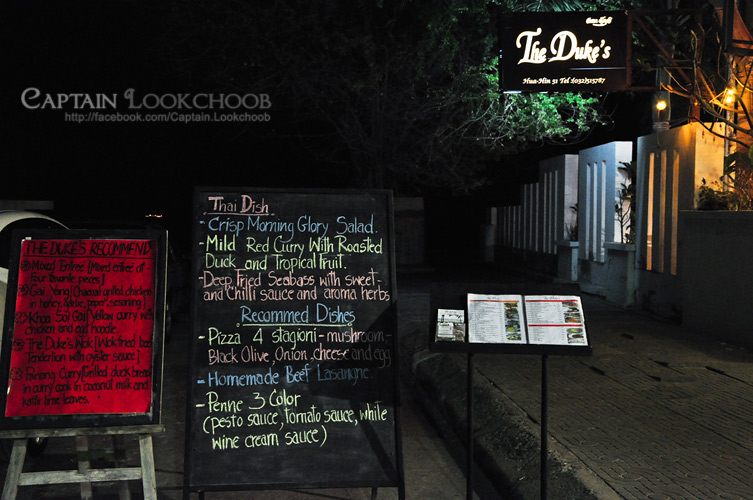 The Duke's
Hua-Hin 51 Tel (032)515787
Captain Lookchoob
http://facebook.com/Captain.Lookchoob
Thai Dish
- Crisp Morning Glory Salad.
- Mild Red Curry With Roasted
Duck and Tropical Fruit.
- Deep Fried Seabass with sweet-
and Chilli sauce and aroma herbs
Recommed Dishes
- Pizza 4 stagioni - mushroom -
Black Olive, Onion, cheese and egg
- Homemade Beef Lasangne
- Penne 3 Color
(pesto sauce, tomato sauce, white
wine cream sauce)
The Duke's Recommend
Mixed Entree [Mixed entree of
four favorite pieces]
Gai Yang [Charcoal grilled chicken
in honey, garlic, pepper, seasoning]
Khao Soi Gai [Yellow curry with
chicken and egg noodle
The Duke's Wok [Wok fried beef
Tenderloin with oyster sauce]
Panang Curry [Grilled duck breast
in curry cook in coconut milk and
kaffir lime leaves.